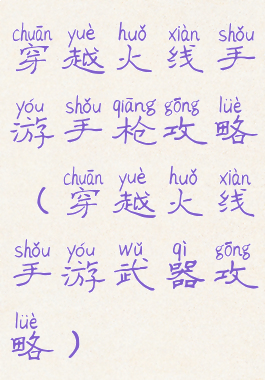 chuān yuè huǒ xiàn shǒu
穿越火线手
yóu shǒu qiāng gōng lüè
游手枪攻略
chuān yuè huǒ xiàn
（穿越火线
shǒu yóu wǔ qì gōng
手游武器攻
lüè
略）